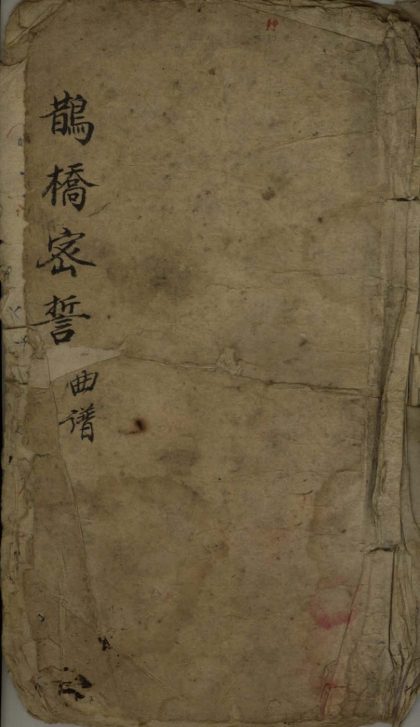 鵲橋密誓
曲谱